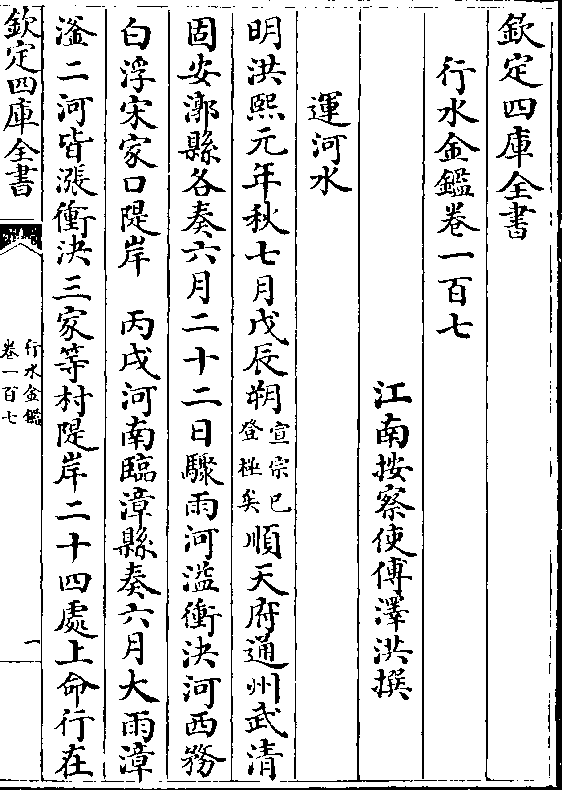 欽定四庫全書
行水金鑑卷一百七
江南按察使傅澤洪撰
運河水
明洪熙元年秋七月戊辰朔宣宗已登極矣順天府通州武清
固安漷縣各奏六月二十二日驟雨河溢衝決河西務
白浮宋家口隄岸　丙戌河南臨漳縣奏六月大雨漳
滏二河皆漲衝決三家等村隄岸二十四處上命行在
欽定四庫全書
行水金鑑
卷一百七
一